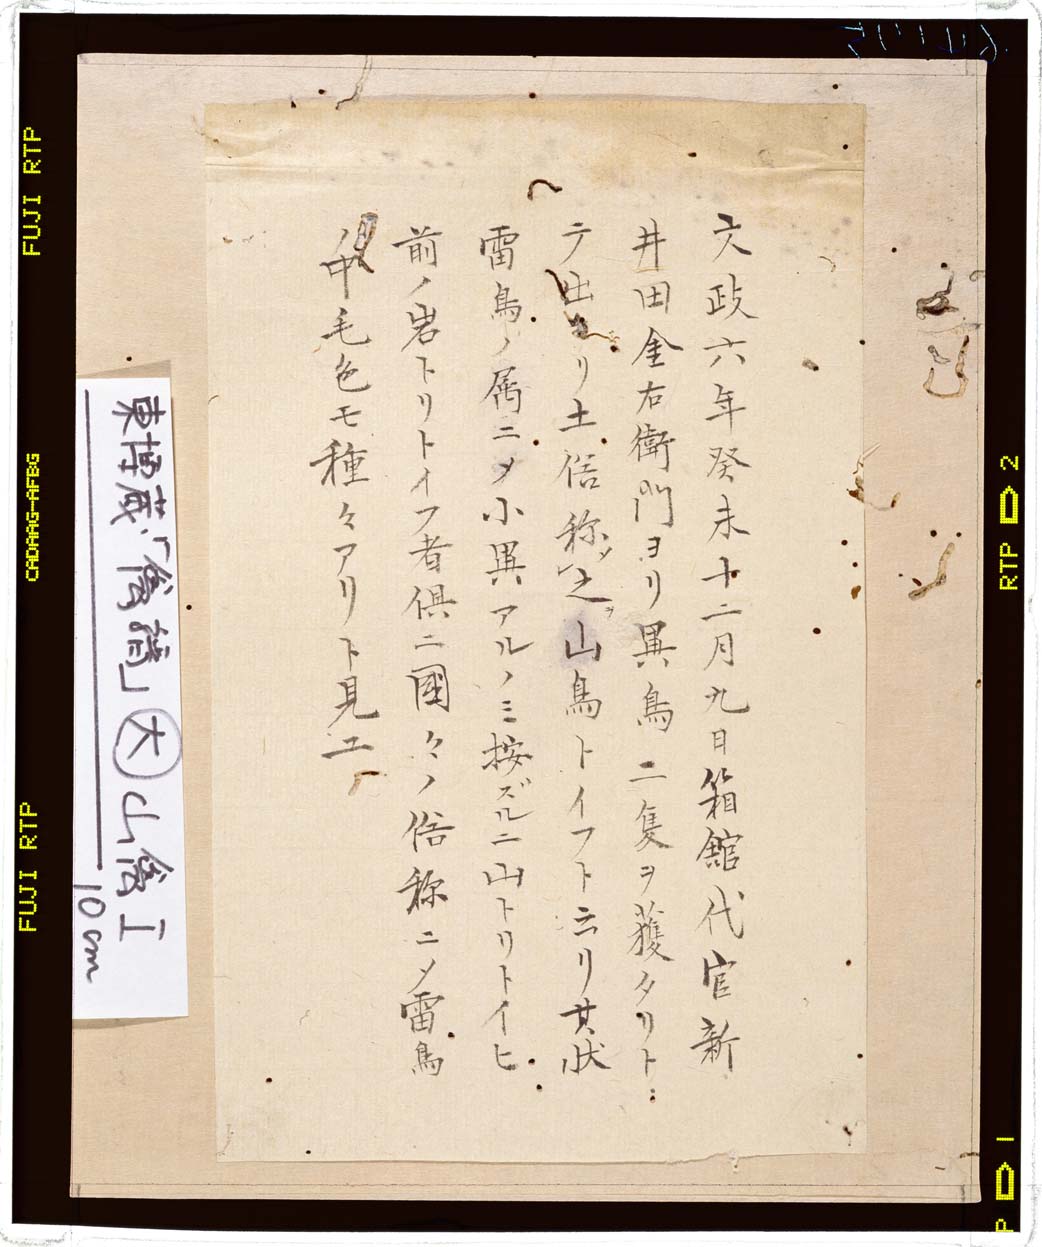 文政六年癸未十二月九日箱館代官新
井田金右衛門ヨリ異鳥二隻ヲ獲タリト
テ出セリ土俗称〆之ヲ山鳥トイフト云リ其状
雷鳥ノ属ニ〆小異アルノミ按ズルニ山トリトイヒ
前ノ岩トリトイフ者倶ニ國々ノ俗称ニ〆雷鳥
ノ中毛色モ種々アリト見エ
東博蔵・「禽譜」大 山禽I
10cm
FUJI RTP
CADAAG-AFBG
FUJI RTP
RTP 2
P 1